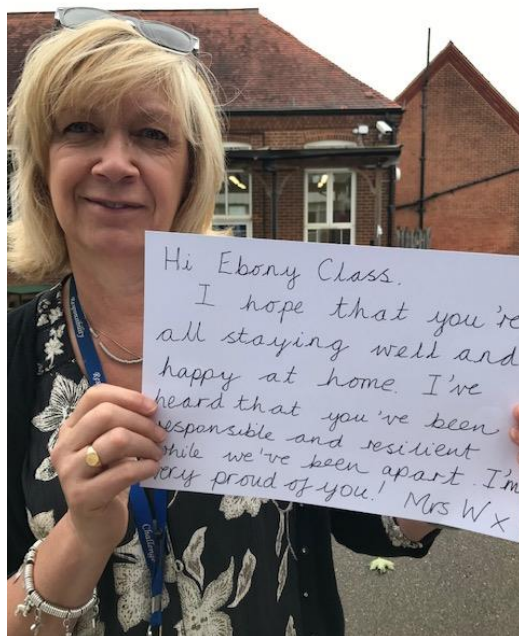 Hi Ebony Class.
I hope that you're
all staying well and
happy at home. I've
heard that you've been
responsible and resilient
while we've been apart. I'm
very proud of you! Mrs W x
Responsibility
Challenge